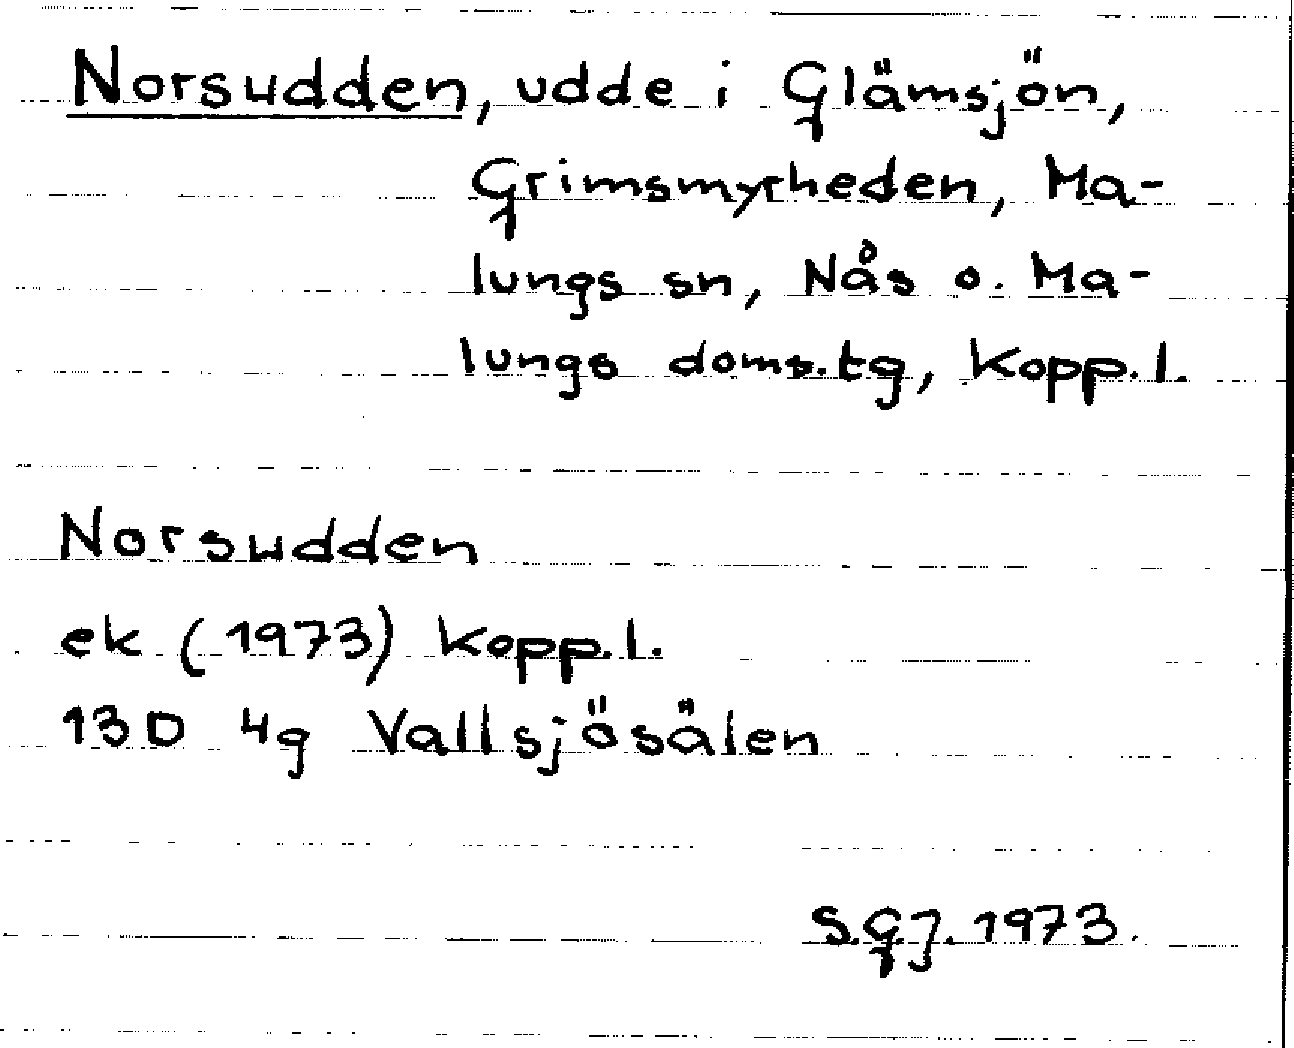 Norsudden, udde i Glämsjön,
Grimsmyrheden, Ma-
lungs sn, Nås o. Ma-
lungs doms.tg, Kopp.l.
Norsudden
ek (1973) Kopp.l.
13D 4g Vallsjösälen
S.G.J. 1973.